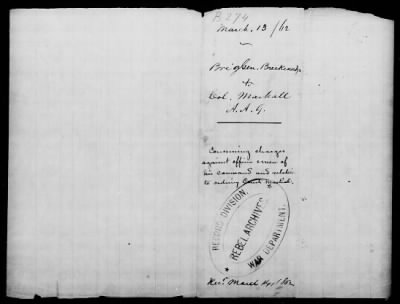 B.274
March. 13/62
Brig Gen. Breckenridge
to
Col. Mackall
A. A. G.
Concerning charges
against officers & men of
his command and relative
to ordering Court Martial.
RECORD DIVISION,
REBEL ARCHIVES
WAR DEPARTMENT.
Rec.d March 14th/62